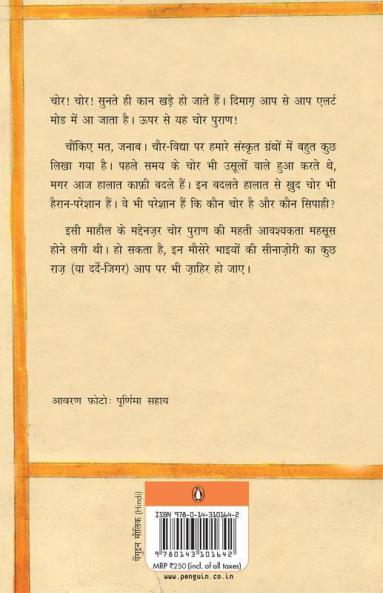 चोर! चोर! सुनते ही कान खड़े हो जाते हैं। दिमाग़ आप से आप एलर्ट
मोड में आ जाता है। ऊपर से यह चोर पुराण!
चौंकिए मत, जनाब। चौर-विद्या पर हमारे संस्कृत ग्रंथों में बहुत कुछ
लिखा गया है। पहले समय के चोर भी उसूलों वाले हुआ करते थे,
मगर आज हालात काफ़ी बदले हैं। इन बदलते हालात से ख़ुद चोर भी
हैरान-परेशान हैं। वे भी परेशान हैं कि कौन चोर है और कौन सिपाही?
इसी माहौल के मद्देनज़र चोर पुराण की महती आवश्यकता महसूस
होने लगी थी। हो सकता है, इन मौसेरे भाइयों की सीनाज़ोरी का कुछ
राज़ (या दर्दे-जिगर) आप पर भी ज़ाहिर हो जाए।
आवरण फ़ोटो: पूर्णिमा सहाय
पेंगुइन मौलिक (Hindi)
ISBN 978-0-14-310164-2
9 780143 101642
MRP ₹250 (incl. of all taxes)
www.penguin.co.in